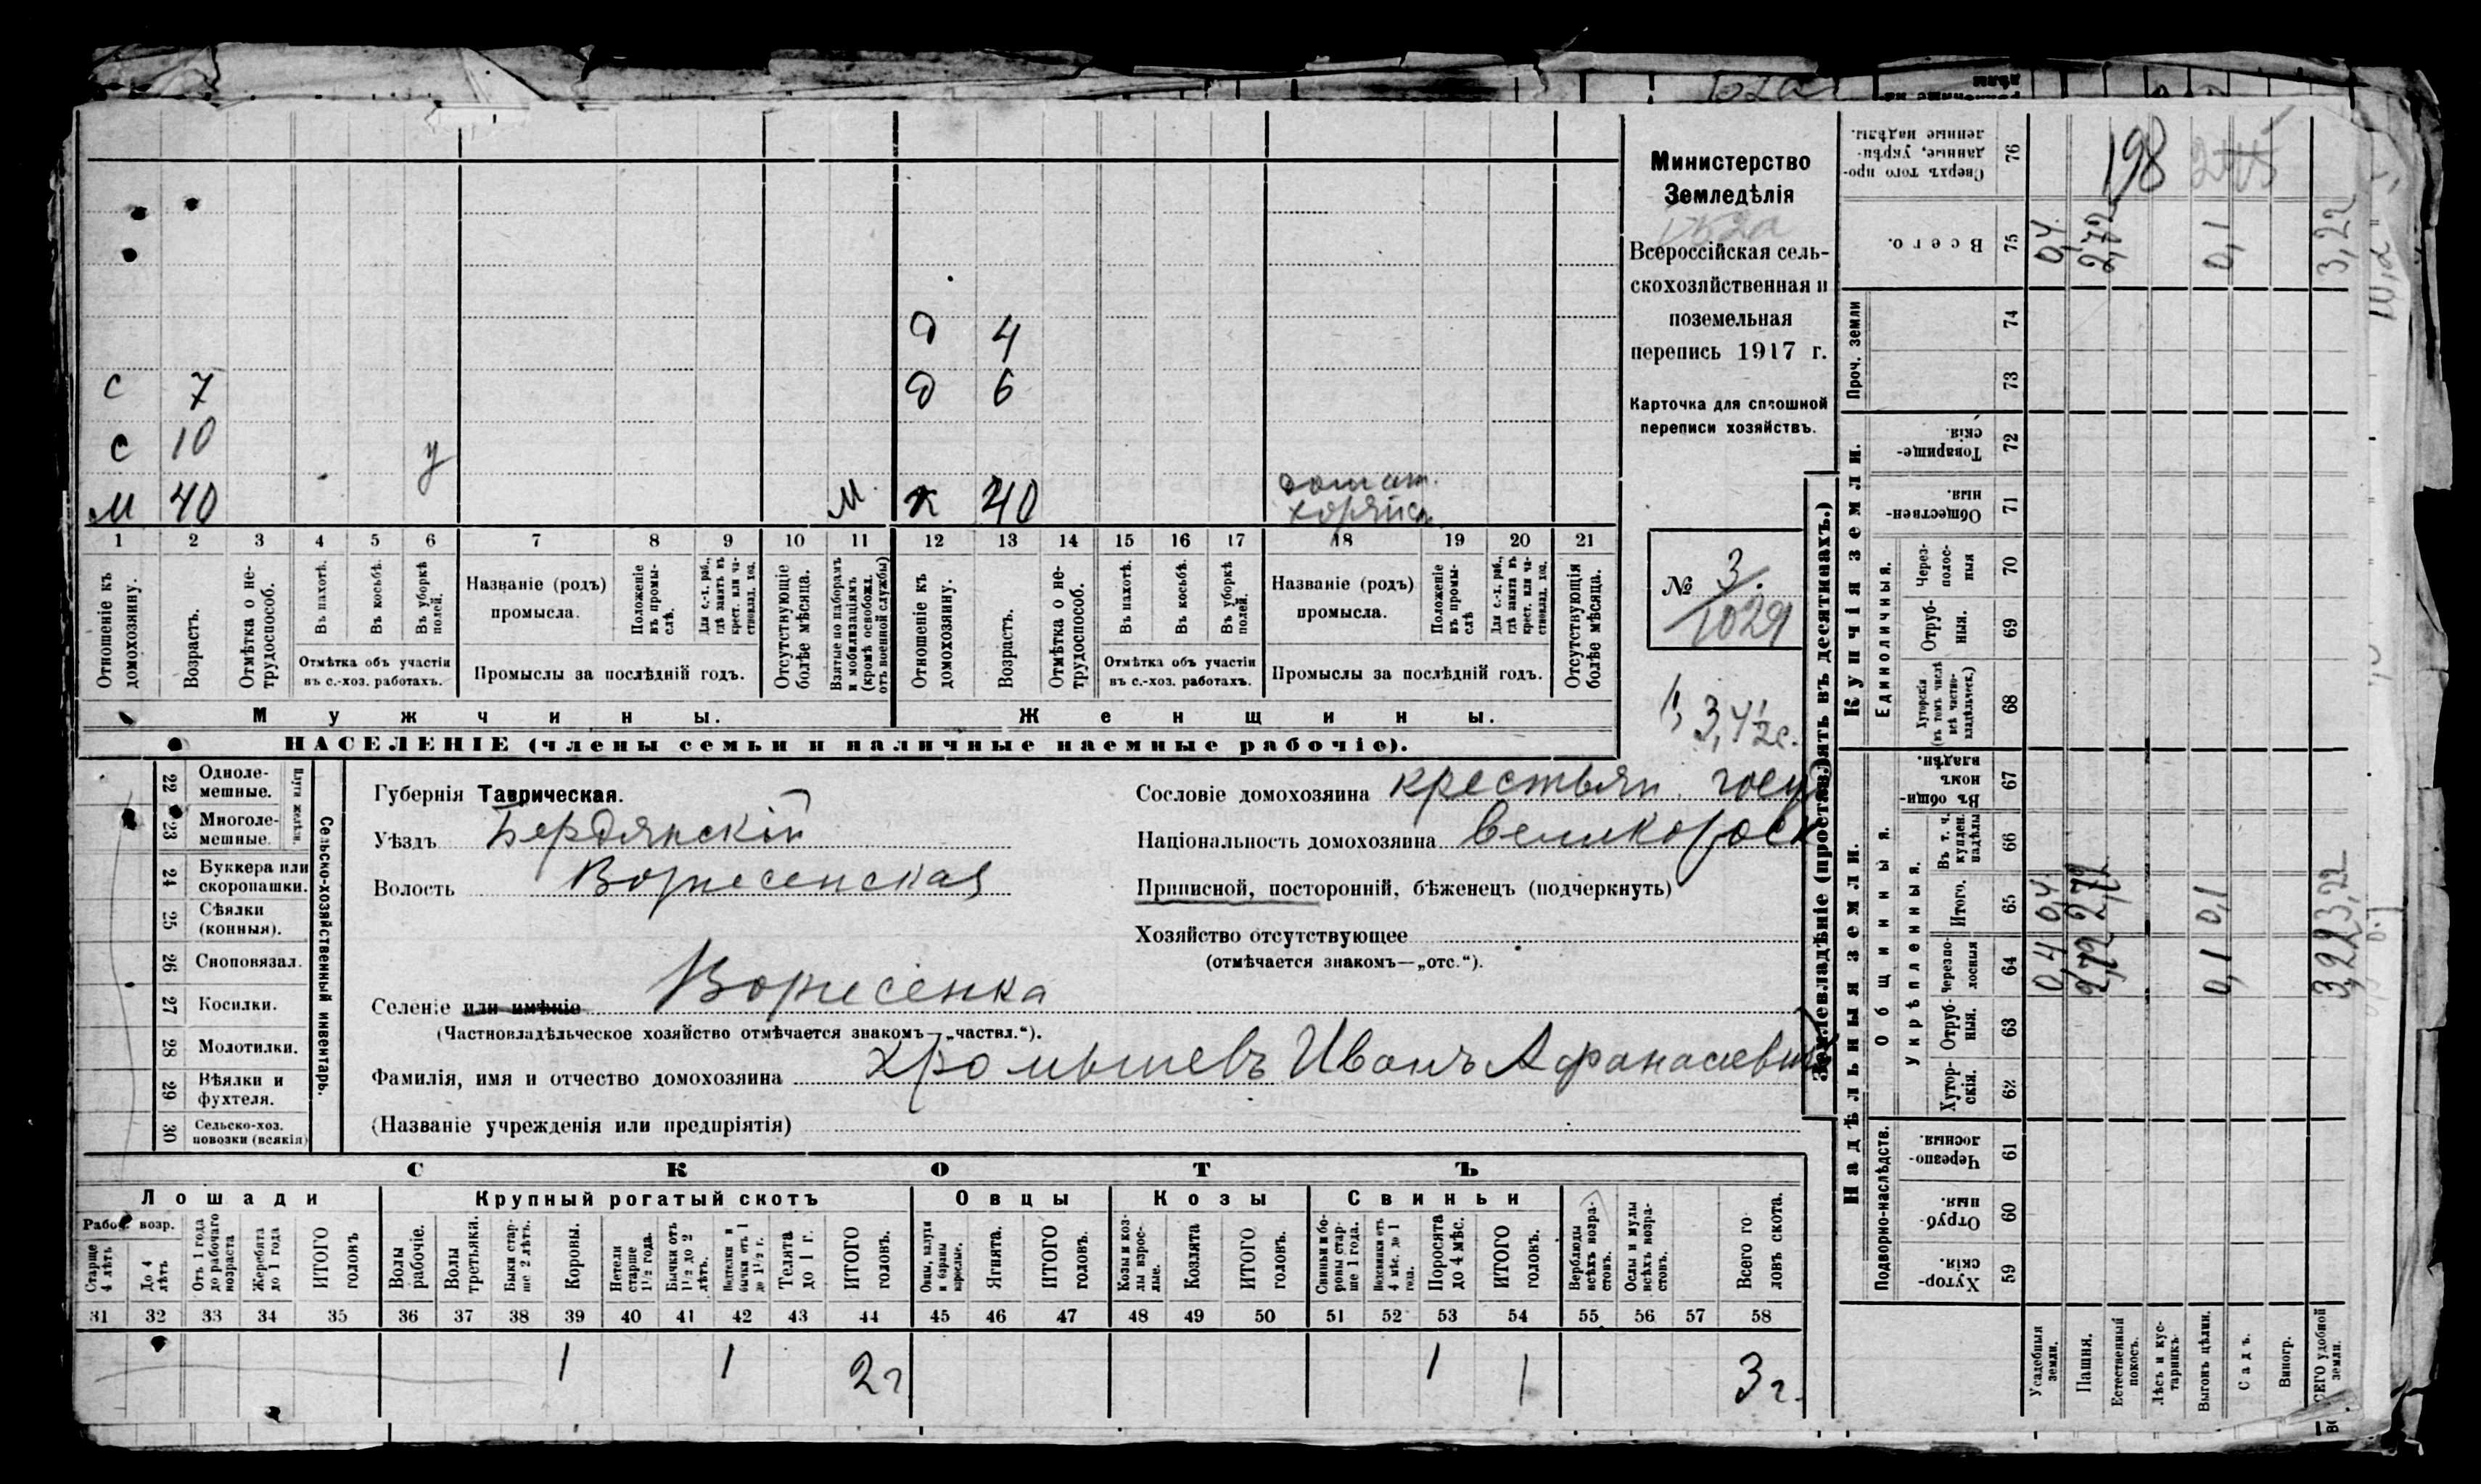 Министерство
Земледѣлія
Всероссійская сель-
скохозяйственная и
поземельная
перепись 1917 г.
Карточка для сплошной
переписи хозяйствъ.
№ 3.
1029
д 4
с 7 д 6
с 10 у
м 40 м. ж 40
1 2 3 4 5 6 7 8 9 10 11 12 13 14 15 16 17 18 19 20 21
Отношеніе къ домохозяину.
Возрастъ.
Отмѣтка о не-трудоспособ.
Въ пахотѣ.
Въ косьбѣ.
Въ уборкѣ полей.
Отмѣтка объ участіи
въ с.-хоз. работахъ.
Названіе (родъ)
промысла.
Положеніе въ промы-слѣ.
Для с.-х. раб., гдѣ занятъ въ крест. или ча-стновлад. хоз.
Промыслы за послѣдній годъ.
Отсутствующіе болѣе мѣсяца.
Взятые по наборамъ и мобилизаціямъ (кромѣ освобожд. отъ военной службы)
Отношеніе къ домохозяину.
Возрастъ.
Отмѣтка о не-трудоспособ.
Въ пахотѣ.
Въ косьбѣ.
Въ уборкѣ полей.
Отмѣтка объ участіи
въ с.-хоз. работахъ.
Названіе (родъ)
промысла.
Положеніе въ промы-слѣ
Для с.-х. раб., гдѣ занята въ крест. или ча-стновлад. хоз.
Промыслы за послѣдній годъ.
Отсутствующія болѣе мѣсяца.
Мужчины. Женщины.
НАСЕЛЕНІЕ (члены семьи и наличные наемные рабочіе).
22 Одноле-мешные.
23 Многоле-мешные.
24 Буккера или скоропашки.
25 Сѣялки (конныя).
26 Сноповязал.
27 Косилки.
28 Молотилки.
29 Вѣялки и фухтеля.
30 Сельско-хоз. повозки (всякія)
Плуги желѣзн.
Сельско-хозяйственный инвентарь.
Губернія Таврическая.
Уѣздъ Бердянскій
Волость Вознесенская
Селеніе или имѣніе Вознесенка
(Частновладѣльческое хозяйство отмѣчается знакомъ—„частвл.“).
Фамилія, имя и отчество домохозяина Хромышевъ Иванъ Афанасьевич
(Названіе учрежденія или предпріятія)
Сословіе домохозяина крестьян. госуд
Національность домохозяина великоросс
Приписной, посторонній, бѣженецъ (подчеркнуть)
Хозяйство отсутствующее
(отмѣчается знакомъ—„отс.“).
СКОТЪ
Лошади Крупный рогатый скотъ Овцы Козы Свиньи
Рабоч. возр.
Старше 4 лѣтъ
До 4 лѣтъ
Отъ 1 года до рабочаго возраста
Жеребята до 1 года
ИТОГО головъ
Волы рабочіе.
Волы третьяки.
Быки стар-ше 2 лѣтъ.
Коровы.
Нетели старше 1½ года.
Бычки отъ 1½ до 2 лѣтъ.
Подтелки и бычки отъ 1 до 1½ г.
Телята до 1 г.
ИТОГО головъ.
Овцы, валухи и бараны взрослые.
Ягнята.
ИТОГО головъ.
Козы и коз-лы взрос-лые.
Козлята
ИТОГО головъ.
Свиньи и бо-ровы стар-ше 1 года.
Подсвинки отъ 4 мѣс. до 1 года.
Поросята до 4 мѣс.
ИТОГО головъ.
Верблюды всѣхъ возра-стовъ.
Ослы и мулы всѣхъ возра-стовъ.
Всего го-ловъ скота.
31 32 33 34 35 36 37 38 39 40 41 42 43 44 45 46 47 48 49 50 51 52 53 54 55 56 57 58
1 1 2г 1 1 3г.
Землевладѣніе (проставлять въ десятинахъ.)
Надѣльныя земли. Купчія земли. Проч. земли
Подворно-наслѣдств. Общинныя. Укрѣпленныя. Единоличныя.
Сверхъ того про-данные, укрѣп-ленные надѣлы. 76 198
Всего. 75 0,4 2,72 0,1 3,22
74
73
Товарище-скія. 72
Обществен-ныя. 71
Через-полос-ныя 70
Отруб-ныя. 69
Хуторскія (въ томъ числѣ всѣ частно-владѣльческ.) 68
Въ общин-номъ владѣн. 67
Въ т. ч. куплен. надѣлы 66
Итого. 65 0,4 2,72 0,1 3,22
Черезпо-лосныя 64 0,4 2,72 0,1 3,22
Отруб-ныя. 63
Хутор-скія. 62
Черезпо-лосныя. 61
Отруб-ныя. 60
Хутор-скія. 59
Усадебныя земли.
Пашня.
Естественный покосъ.
Лѣсъ и кус-тарникъ.
Выгонъ цѣлин.
Садъ.
Виногр.
ВСЕГО удобной земли.